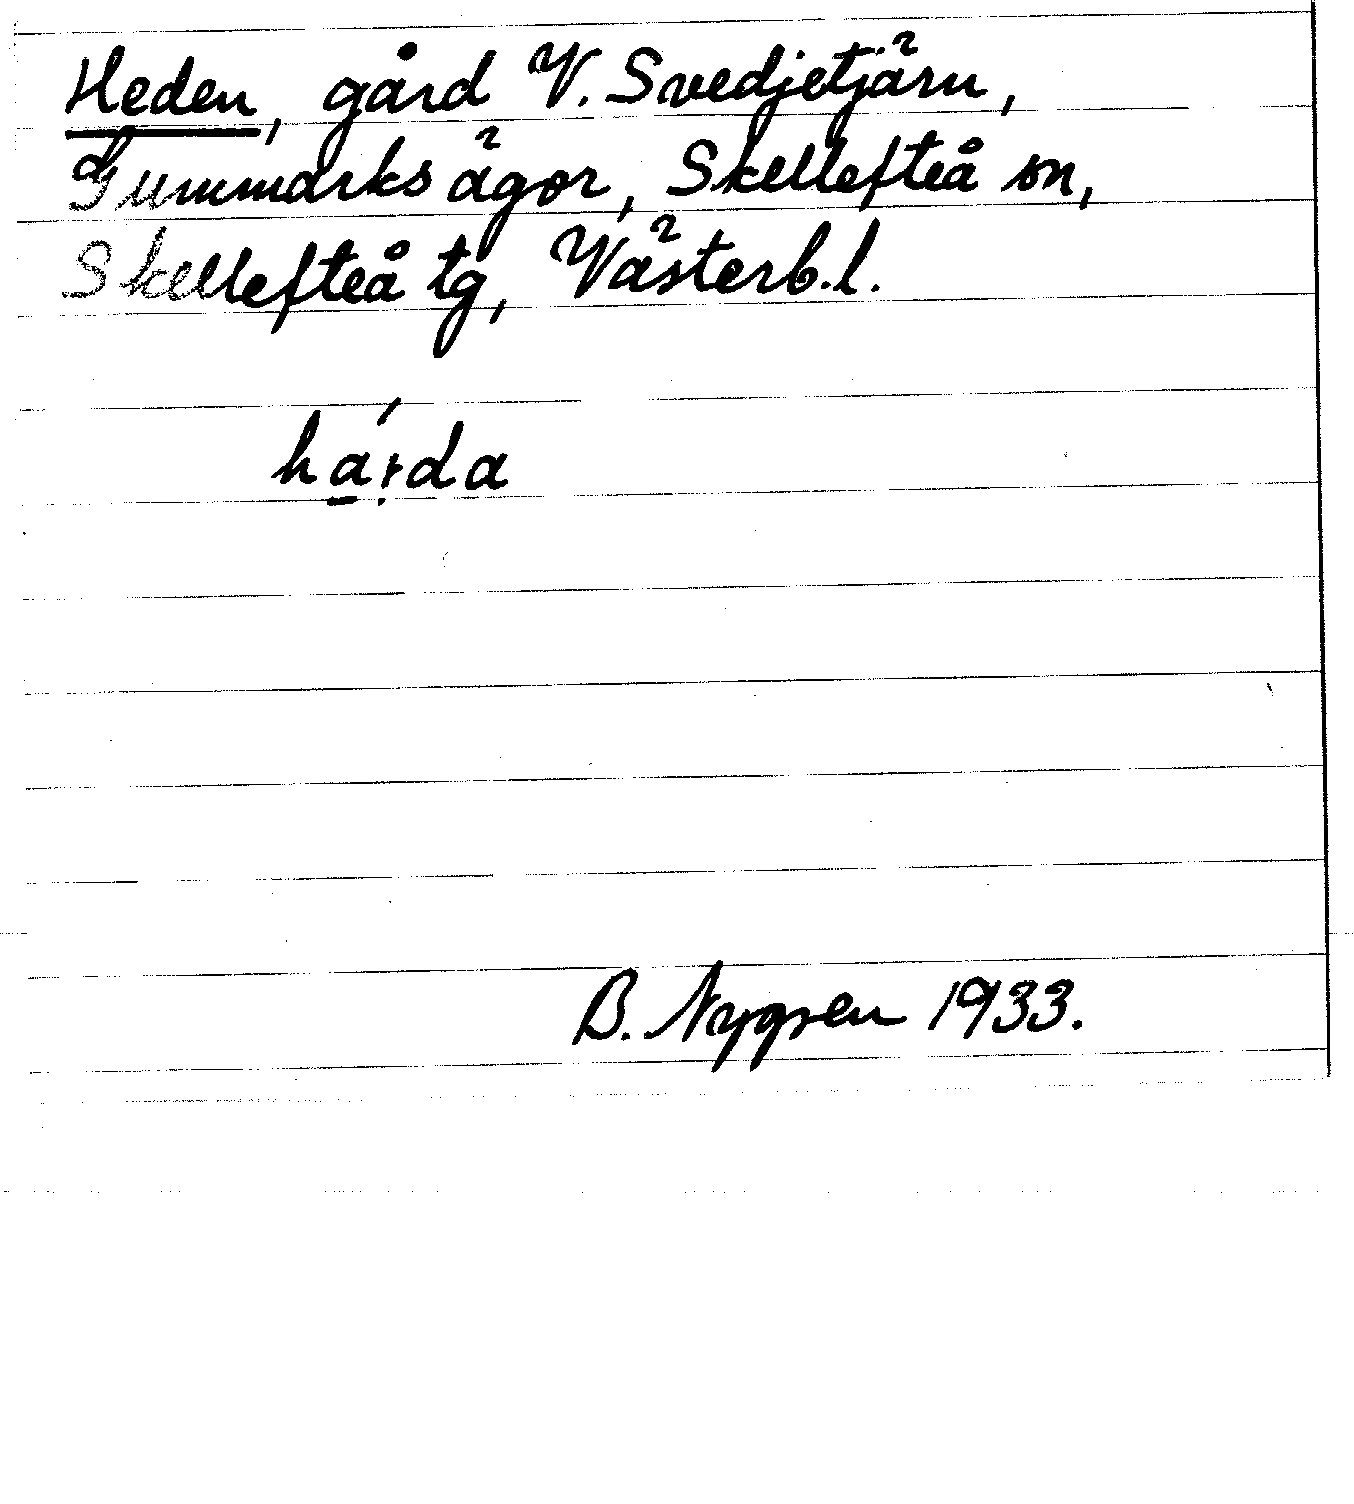 Heden, gård V. Svedjetjärn,
Gummarks ägor, Skellefteå sn,
Skellefteå tg, Västerb.l.
há̱ṛda
B. Nygren 1933.